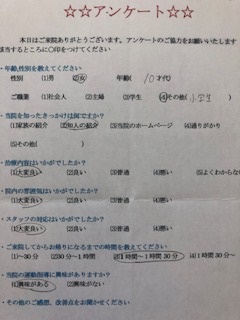 ☆☆アンケート☆☆
本日はご来院ありがとうございます。アンケートのご協力をお願いいたします
該当するところに〇印をつけてください
・年齢,性別を教えてください
性別 (1)男 (2)女 年齢( 10才代)
ご職業 (1)社会人 (2)主婦 (3)学生 (4)その他(小学生
・当院を知ったきっかけは何ですか?
(1)家族の紹介 (2)知人の紹介 (3)当院のホームページ (4)通りがかり
(5)その他( )
・治療内容はいかがでしたか?
(1)大変良い (2)良い (3)普通 (4)悪い (5)よくわからない
・院内の雰囲気はいかがでしたか?
(1)大変良い (2)良い (3)普通 (4)悪い
・スタッフの対応はいかがでしたか?
(1)大変良い (2)良い (3)普通 (4)悪い
・ご来院してからお帰りになるまでの時間を教えてください
(1)～30分 (2)30分～1時間 (3)1時間～1時間30分 (4)1時間30分～
・当院の運動指導に興味がありますか?
(1)興味がある (2)興味がない
・その他のご感想、改善点をお聞かせください